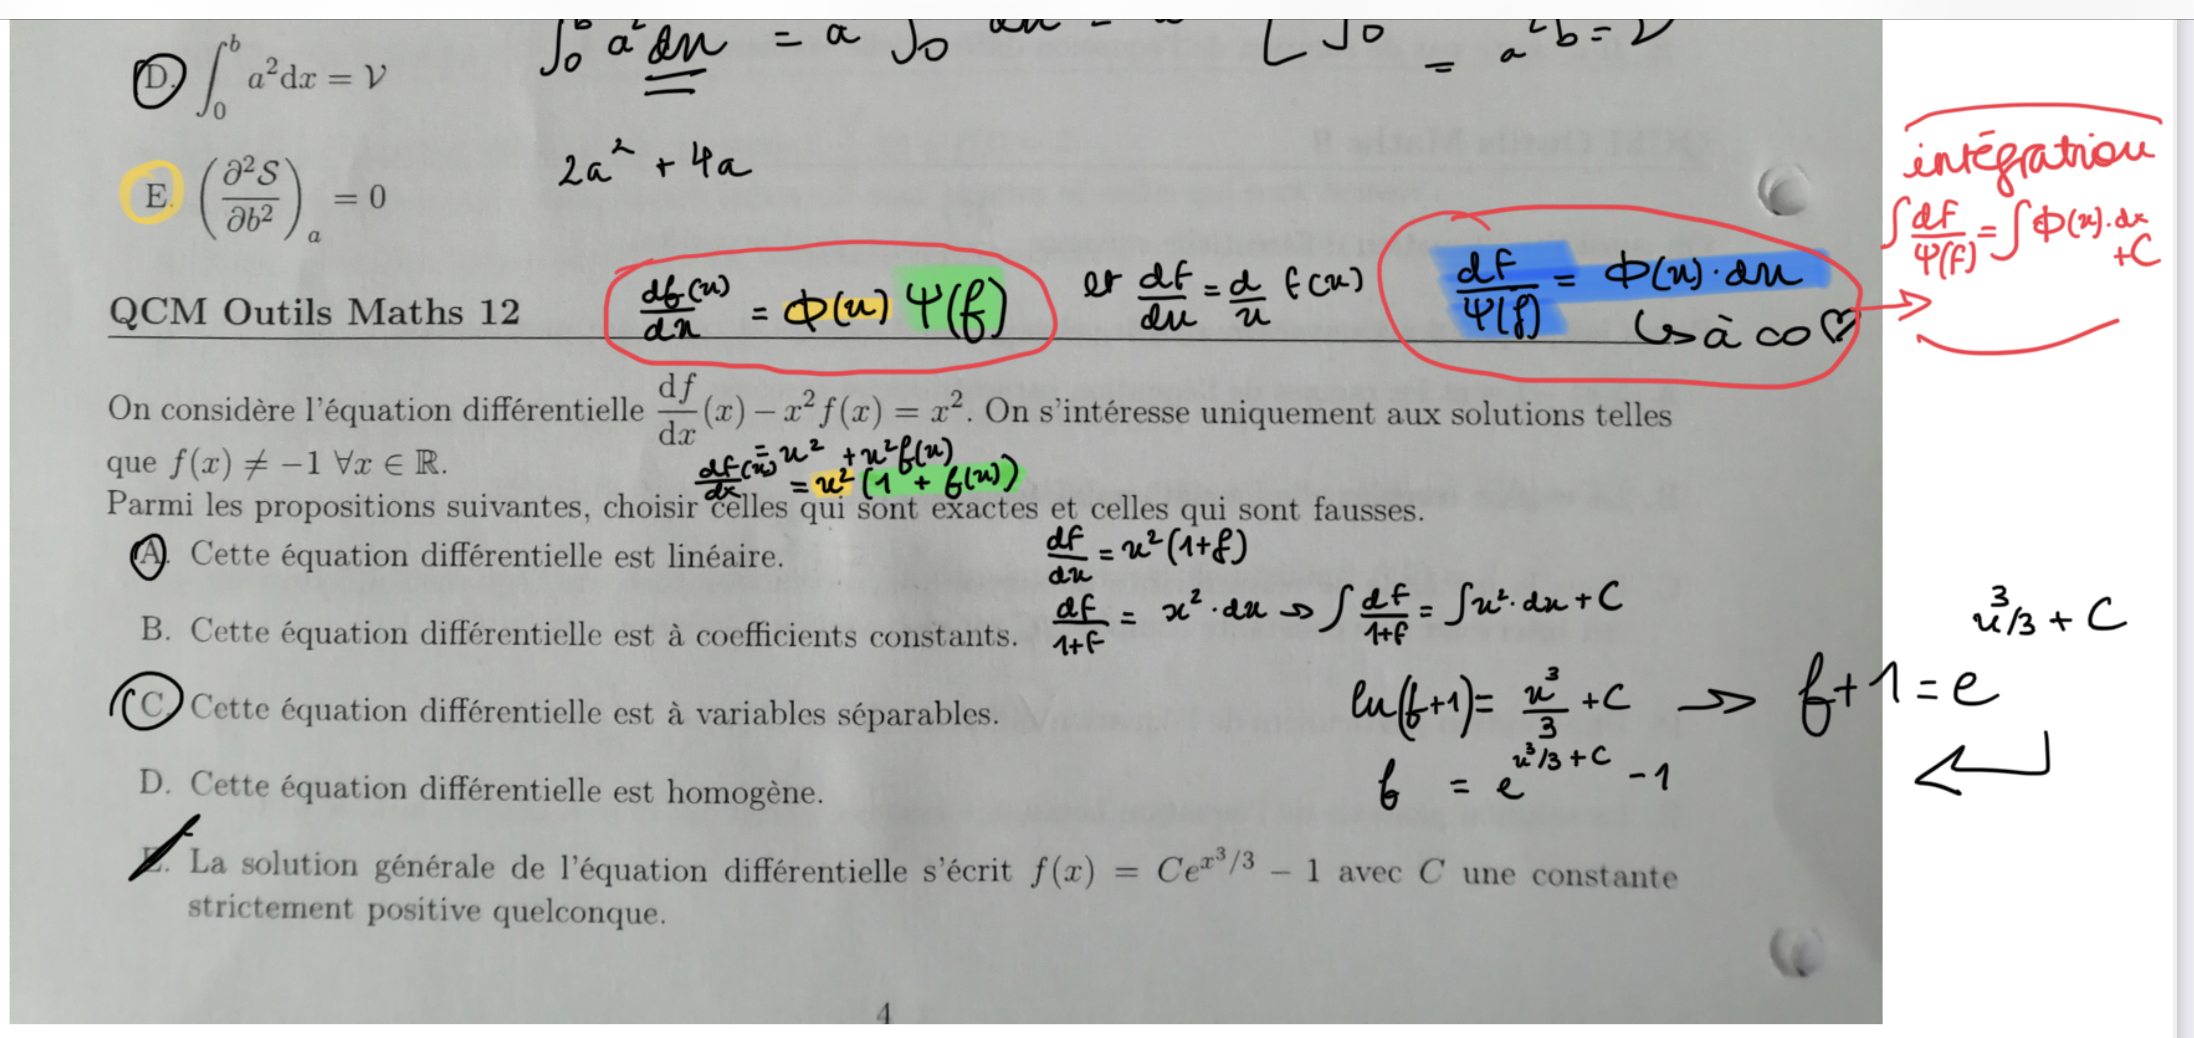 D. ∫₀ᵇ a²dx = 𝒱
∫₀ᵇ a² dx = a
a²b = V
E. (∂²S/∂b²)ₐ = 0
2a² + 4a
intégration
∫ df/Ψ(f) = ∫ Φ(x).dx + C
QCM Outils Maths 12
df(x)/dx = Φ(x) Ψ(f)
et df/dx = d/x f(x)
df/Ψ(f) = Φ(x)·dx
↳ à co ♡
On considère l'équation différentielle df/dx (x) − x²f(x) = x². On s'intéresse uniquement aux solutions telles
que f(x) ≠ −1 ∀x ∈ ℝ.
df(x)/dx = x² + x²f(x)
= x² (1 + f(x))
Parmi les propositions suivantes, choisir celles qui sont exactes et celles qui sont fausses.
A. Cette équation différentielle est linéaire.
df/dx = x²(1+f)
B. Cette équation différentielle est à coefficients constants.
df/1+f = x²·dx → ∫ df/1+f = ∫x²·dx + C
C. Cette équation différentielle est à variables séparables.
ln(f+1) = x³/3 + C → f+1 = e^(x³/3 + C)
f = e^(x³/3 + C) − 1
D. Cette équation différentielle est homogène.
E. La solution générale de l'équation différentielle s'écrit f(x) = Ce^(x³/3) − 1 avec C une constante
strictement positive quelconque.
4